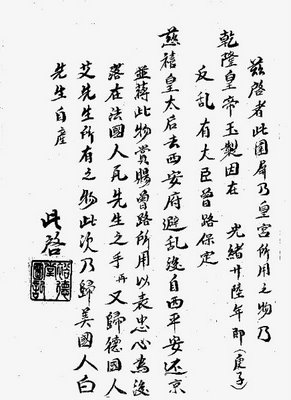 茲啓者此圍屏乃皇宮所用之物乃
乾隆皇帝玉製因在 光緒廿陸年即(庚子)
反乱有大臣曾路保定
慈禧皇太后去西安府避乱後自西平安还京
並蔣此物賞賜曾路所用以表忠心為後
落在法國人瓦先生之手再又歸德國人
艾先生所有之物此次乃歸美國人白
先生自產
此啓